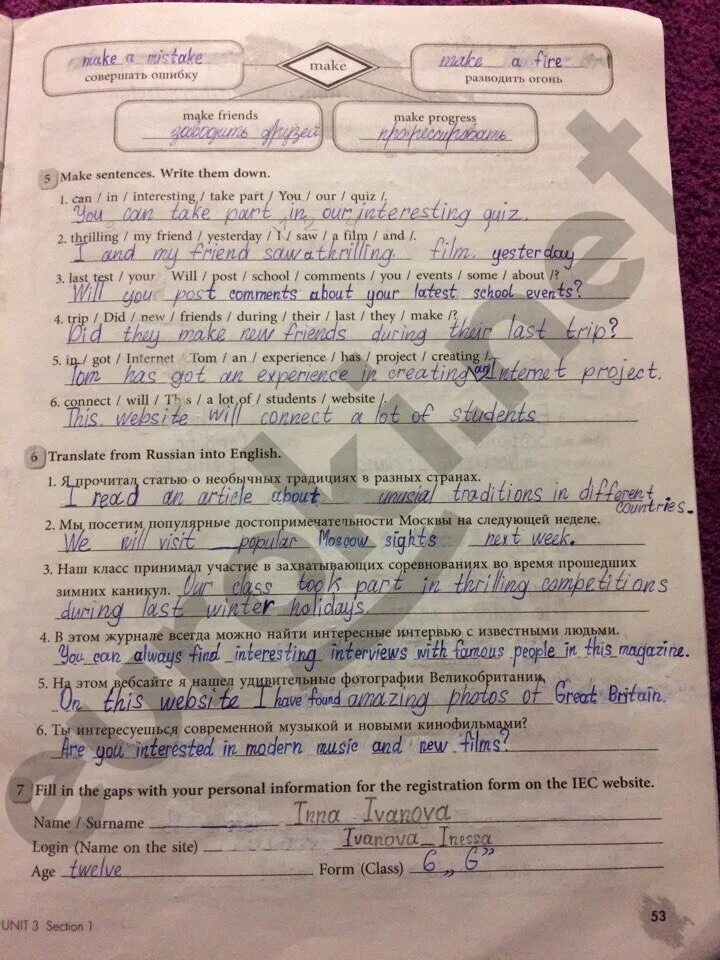 make a mistake
совершать ошибку
make
make a fire
разводить огонь
make friends
заводить друзей
make progress
прогрессировать
5 Make sentences. Write them down.
1. can / in / interesting / take part / You / our / quiz /.
You can take part in our interesting quiz.
2. thrilling / my friend / yesterday / I / saw / a film / and /.
I and my friend saw a thrilling film. yesterday
3. last test / your Will / post / school / comments / you / events / some / about /?
Will you post comments about your latest school events?
4. trip / Did / new / friends / during / their / last / they / make /?
Did they make new friends during their last trip?
5. in / got / Internet Tom / an / experience / has / project / creating /.
Tom has got an experience in creating an Internet project.
6. connect / will / This / a lot of / students / website /.
This website will connect a lot of students
6 Translate from Russian into English.
1. Я прочитал статью о необычных традициях в разных странах.
I read an article about unusial traditions in different
countries.
2. Мы посетим популярные достопримечательности Москвы на следующей неделе.
We will visit popular Moscow sights next week.
3. Наш класс принимал участие в захватывающих соревнованиях во время прошедших
зимних каникул. Our class took part in thrilling competitions
during last winter holidays.
4. В этом журнале всегда можно найти интересные интервью с известными людьми.
You can always find interesting interviews with famous people in this magazine.
5. На этом вебсайте я нашел удивительные фотографии Великобритании.
On this website I have found amazing photos of Great Britain.
6. Ты интересуешься современной музыкой и новыми кинофильмами?
Are you interested in modern music and new films?
7 Fill in the gaps with your personal information for the registration form on the IEC website.
Name / Surname Inna Ivanova
Login (Name on the site) Ivanova_Inessa
Age twelve Form (Class) 6 „G”
UNIT 3 Section 1
53
euroki.net